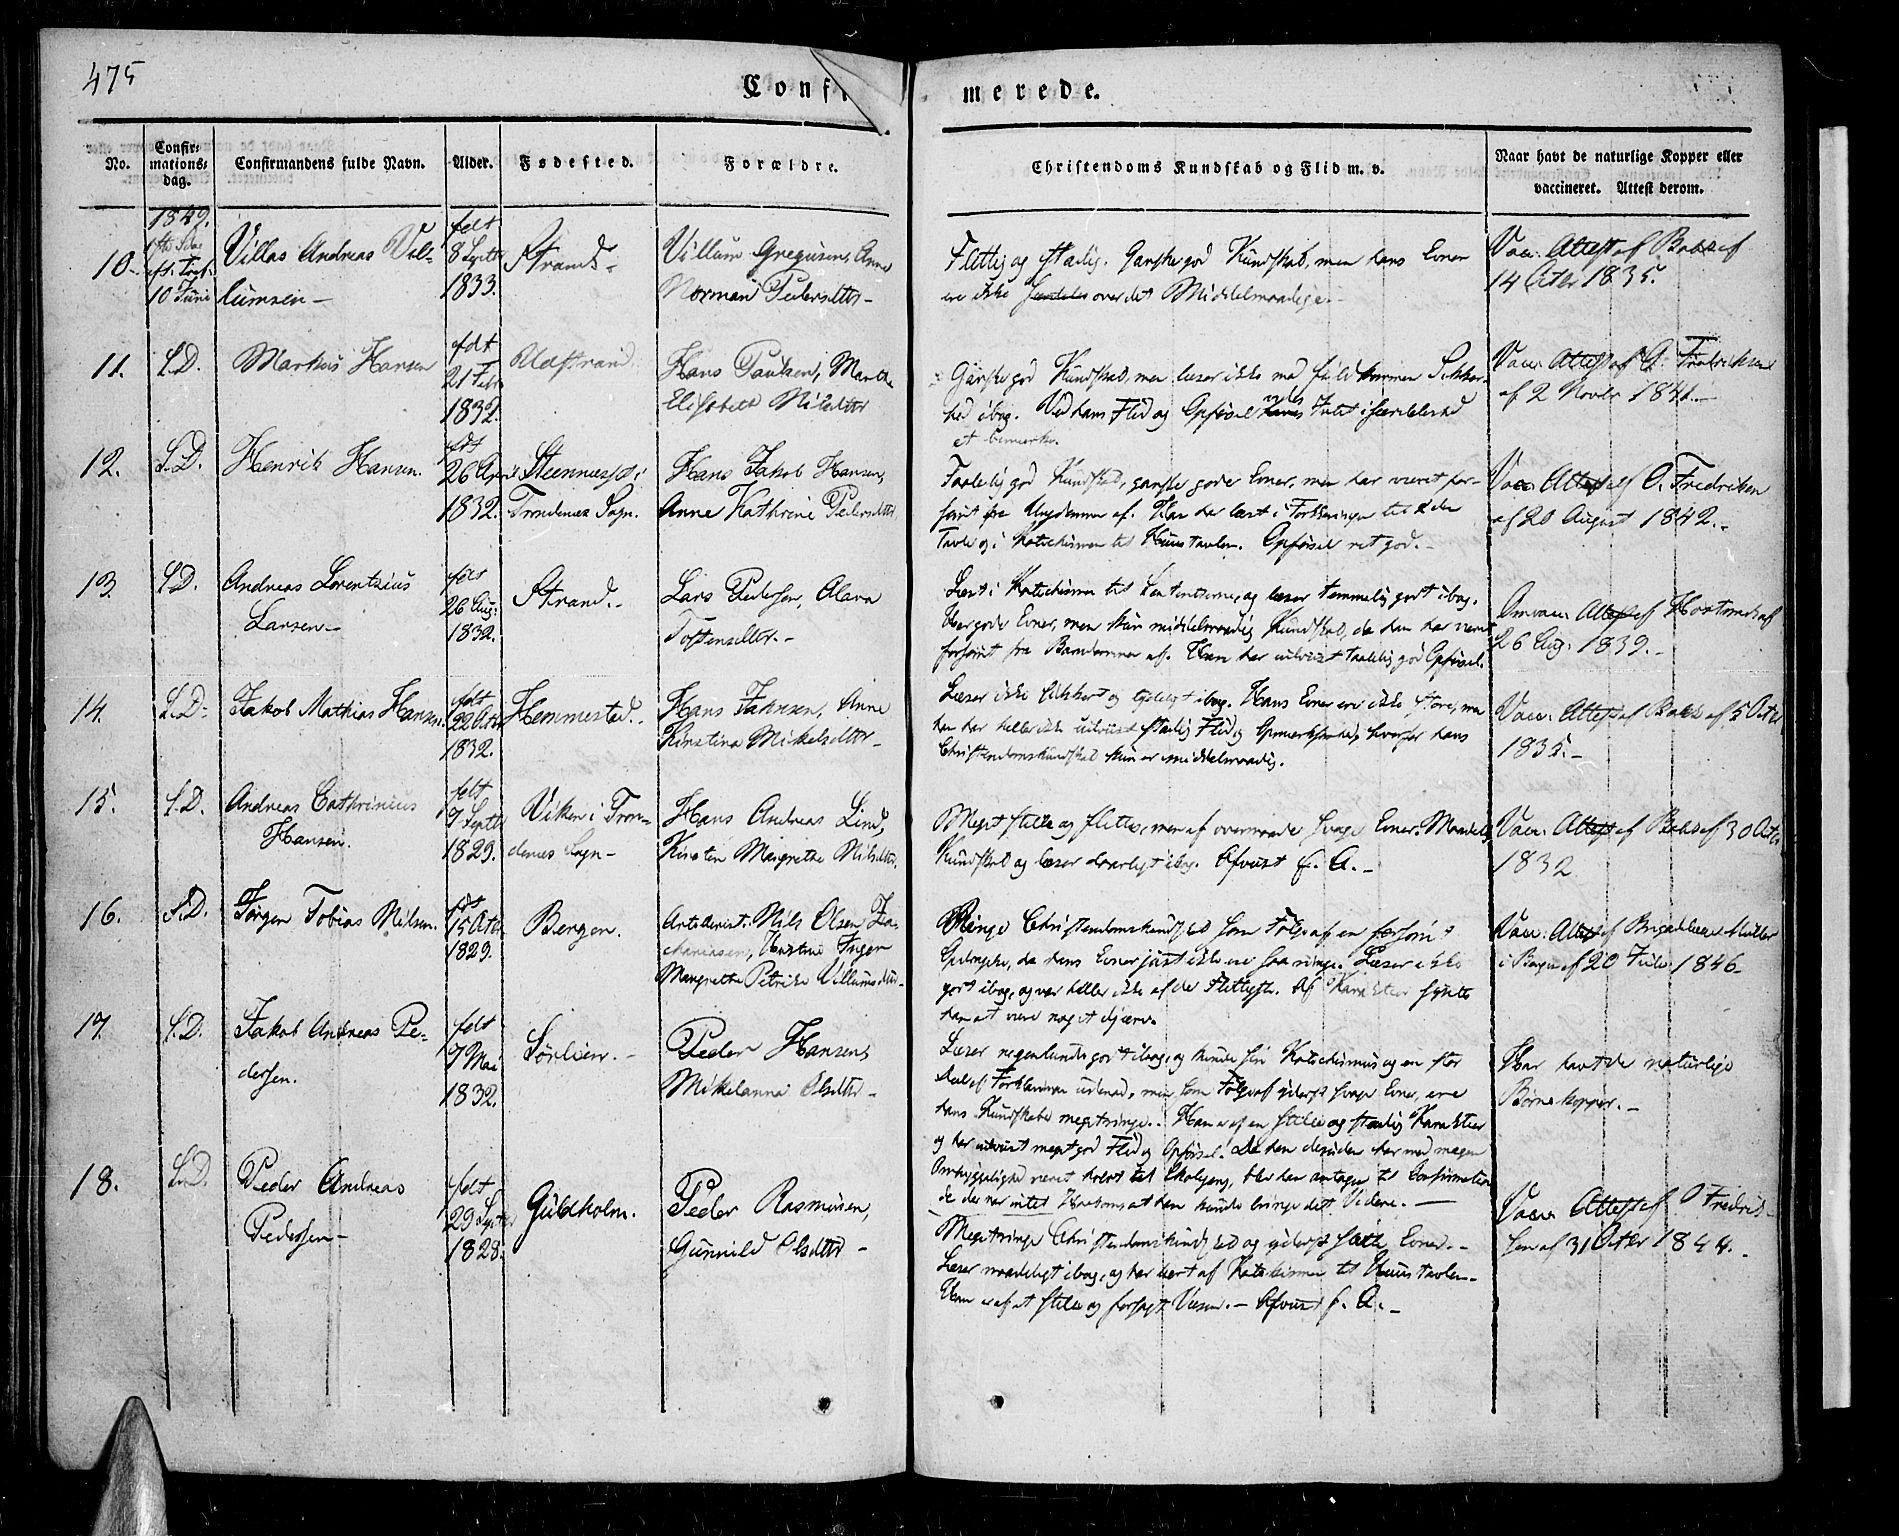 475
Confir
merede.
No.
Confir-
mations-
dag.
Confirmandens fulde Navn.
Alder.
Fødested.
Forældre.
Christendoms Kundskab og Flid m. v.
Naar havt de naturlige Kopper eller
vaccineret. Attest derom.
1849.
10.
10 Juni
Villas Andreas Vil-
lumsen -
født
8 Septbr
1833.
Strand.
Villum Gregusen, Anne
Normani Pedersdtter -
Flittig og stadig. Ganske god Kundskab, men hans Evner
ere ikke over det Middelmaadige. -
Vacc. Attest af
14 Octbr 1835.
11.
S.D.
Markus Hansen
født
21 Febr
1832.
Aldstrand.
Hans Paulsen, Marthe
Elisabeth Nilsdtter
Ganske god Kundskab, men læser ikke med fuldkommen Sikker-
hed ibog. Ved hans Flid og Opførsel Intet i Særdeleshed
at bemærke.
Vacc. Attest af O. Fredriksen
af 2 Novbr 1841. -
12.
S.D.
Henrik Hansen.
født
26 April
1832.
Steennes i
Trondenes Sogn.
Hans Jakob Hansen,
Anne Kathrine Pedersdtter
Taalelig god Kundskab, ganske gode Evner, men har været for-
sømt fra Ungdommen af. Han har læst i Forklaringen til 2den
Tavle og i Katechismen til Huustavlen. Opførsel ret god. -
Vacc. Attest af O. Fredriksen
af 20 August 1842. -
13.
S.D.
Andreas Lorentzius
Larsen -
født
26 Aug.
1832.
Strand. -
Lars Pedersen, Olava
Tostensdtter. -
Læst i Katechismen til og læser temmelig godt ibog.
Har gode Evner, men kun middelmaadig Kundskab, da han har været
forsømt fra Barndommen af. Han har udviist taalelig god Opførsel.
Attest af
26 Aug. 1839. -
14.
S.D.
Jakob Mathias Hansen.
født
22 Octbr
1832.
Hemmestad.
Hans Jahnsen, Anne
Kirstina Mikelsdtter -
Læser ikke sikkert og tydeligt ibog. Hans Evner ere ikke store, men
han har heller ikke udviist stadig Flid og Opmærksomhed, hvorfor hans
Christendomskundskab kun er middelmaadig.
Vacc. Attest af af 5 Octbr
1835. -
15.
S.D.
Andreas Cathrinius
Hansen.
født
7 Septbr
1829.
Viken i Tron-
denes Sogn -
Hans Andreas Lind,
Kirsten Margrethe Nilsdtter.
Meget stille og flittig, men af overmaade svage Evner. Maadelig
Kundskab og læser daarligt ibog. Afviist f. A. -
Vacc. Attest af af 30 Octbr
1832
16.
S.D.
Jørgen Tobias Nilsen.
født
15 Octbr
1829.
Bergen.
Nils Olsen Za-
chariasen, Inger
Margrethe Petrike Villumsdtter -
Ringe Christendomskundskab som Følge af en forsømt
da hans Evner just ikke ere saa ringe. Læser ikke
godt ibog, og var heller ikke af de Flittigste. Af Karakteer synes
han at være noget djærv.
Vacc. Attest af Müller
i Bergen af 20 Juli 1846 -
17.
S.D.
Jakob Andreas Pe-
dersen.
født
7 Mai
1832.
Sørlien. -
Peder Hansen,
Mikelanna Olsdtter -
Læser nogenlunde godt ibog, og kunde sin Katechismus og en stor
Deel af Forklaringen udenad, men som Følge af yderst svage Evner, ere
hans Kundskaber meget ringe. Han er af en stille og stadig Karakteer
og har udviist meget god Flid og Opførsel. Da han desuden har med megen
Omhyggelighed været holdt til Skolegang, blev han antagen til Confirmation
da der var intet Haab om at han kunde bringe det Videre. -
Har havt de naturlige
Børnekopper. -
18.
S.D.
Peder Andreas
Pedersen -
født
29 Septbr
1828.
Guldholm.
Peder Rasmusen,
Gunnild Olsdtter -
Meget ringe Christendomskundskab og yderst Evner. -
Læser maadeligt ibog, og har lært af Katekismen til Huustavlen -
Han er af et stille og forsagt Væsen. - Afviist f. A. -
Vacc. Attest af O Fredrik-
sen af 31 Octbr 1844. -